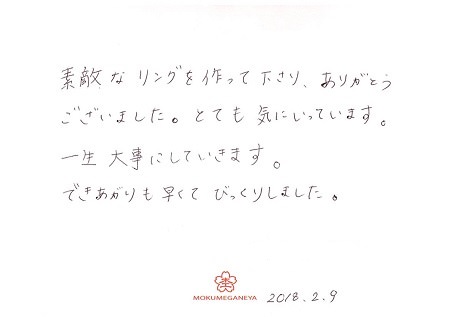 素敵なリングを作って下さり、ありがとう
ございました。とても気にいっています。
一生大事にしていきます。
できあがりも早くてびっくりしました。
MOKUMEGANEYA
2018.2.9